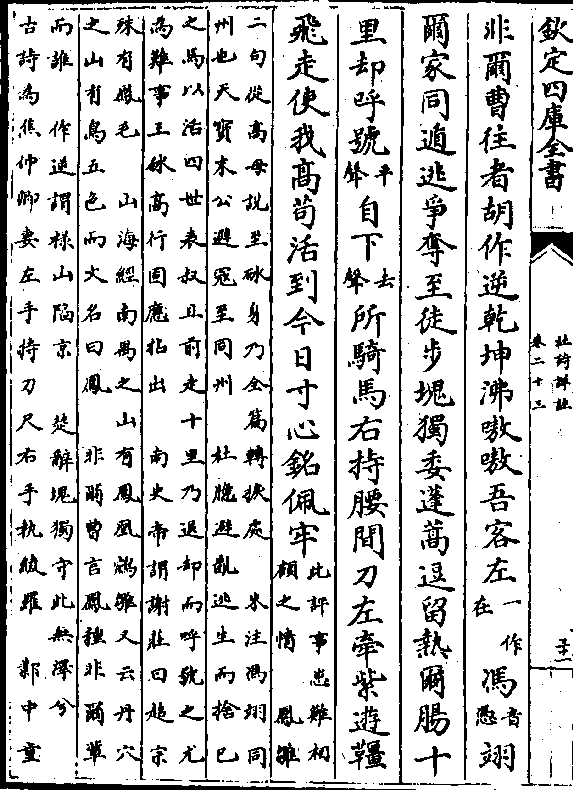 欽定四庫全書
杜詩詳註
卷二十三
非爾曹往者胡作逆乾坤沸嗷嗷吾客左一作在馮音憑翊
爾家同遁逃爭奪至徒步塊獨委蓬蒿逗留熱爾腸十
里却呼號平聲自下去聲所騎馬右持腰間刀左牽紫遊韁
飛走使我高苟活到今日寸心銘佩牢此評事患難相顧之情 鳳雛
二句從高母說至砅身乃全篇轉捩處 朱注馮翊同
州也天寶末公避寇至同州 杜臆避亂逃生而捨已
之馬以活四世表叔且前走十里乃退却而呼號之尤
為難事王砅高行固應拈出 南史帝謂謝莊曰超宗
殊有鳳毛 山海經南禺之山有鳳凰鵷雛又云丹穴
之山有鳥五色而文名曰鳳 非爾曹言鳳種非爾輩
而誰 作逆謂祿山陷京 楚辭塊獨守此無澤兮
古詩為焦仲卿妻左手持刀尺右手執綾羅 鄴中童